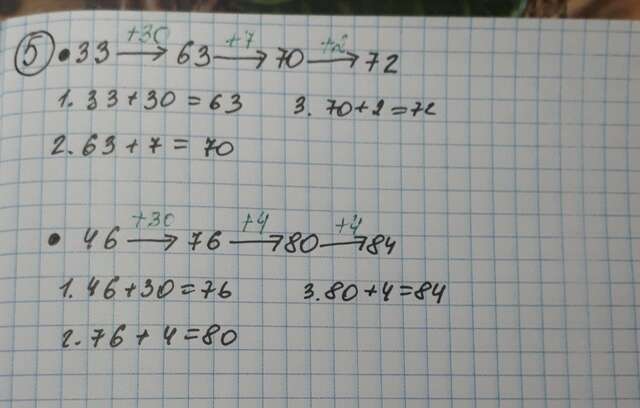 +30 +7 +2
5 • 33 → 63 → 70 → 72
1. 33 + 30 = 63 3. 70 + 2 = 72
2. 63 + 7 = 70
+30 +4 +4
• 46 → 76 → 80 → 84
1. 46 + 30 = 76 3. 80 + 4 = 84
2. 76 + 4 = 80